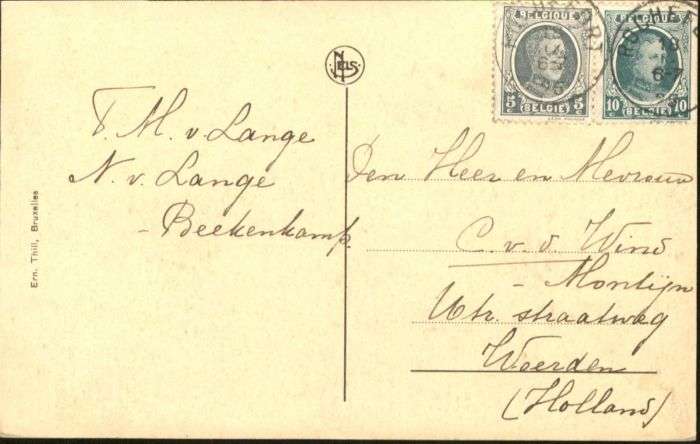 BELGIQUE
BELGIQUE
5 c 5 c
BELGIË
10 c 10 c
BELGIË
6-7
NELS
T. M. v Lange
N. v. Lange
- Beekenkamp.
Den Heer en Mevrouw
C. v. d. Wind
- Montijn
Utr. straatweg
Woerden
(Holland)
Ern. Thill, Bruxelles